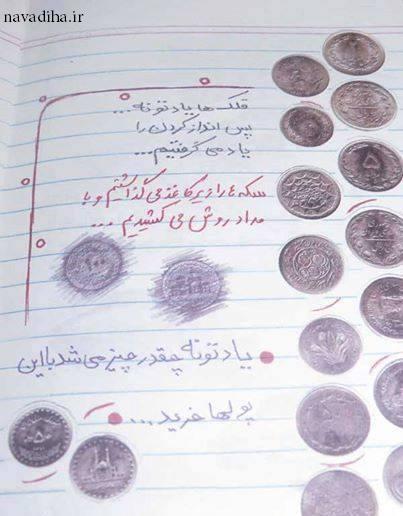 navadiha.ir
قلک ها یادتونه...
پس انداز کردن را
یاد می گرفتیم...
سکه ها را زیر کاغذ می گذاشتیم و با
مداد روش می کشیدیم...
۱۰۰
یادتونه چقدر چیز می شد با این
پولها خرید...
۵
۵۰